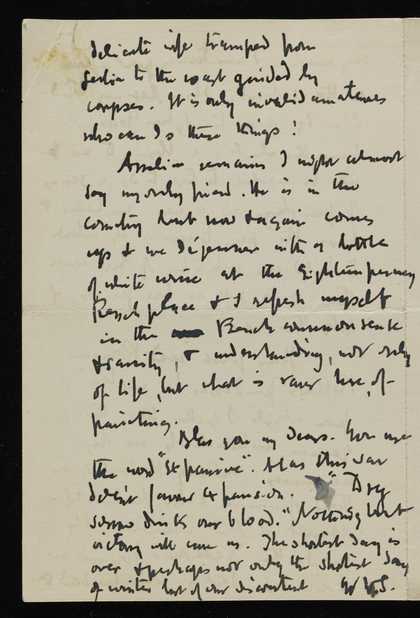 delicate wife tramped from
Serbia to the coast guided by
corpses. It is only invalid amateurs
who can do these things!
Asselin remains I might almost
say my only friend. He is in the
country but now & again comes
up & we déjeuner with a bottle
of white wine at the Eighteenpenny
place & I refresh myself
in the French common sense
& sanity, & understanding, not only
of life, but what is rarer here, of
painting.
Bless you my dears. You use
the word "Expansive". Alas this war
doesn't favour expansion. "Dry
sorrow drinks our blood." Nothing but
victory will cure us. The shortest day is
over & perhaps not only the shortest day
of winter but of our discontent